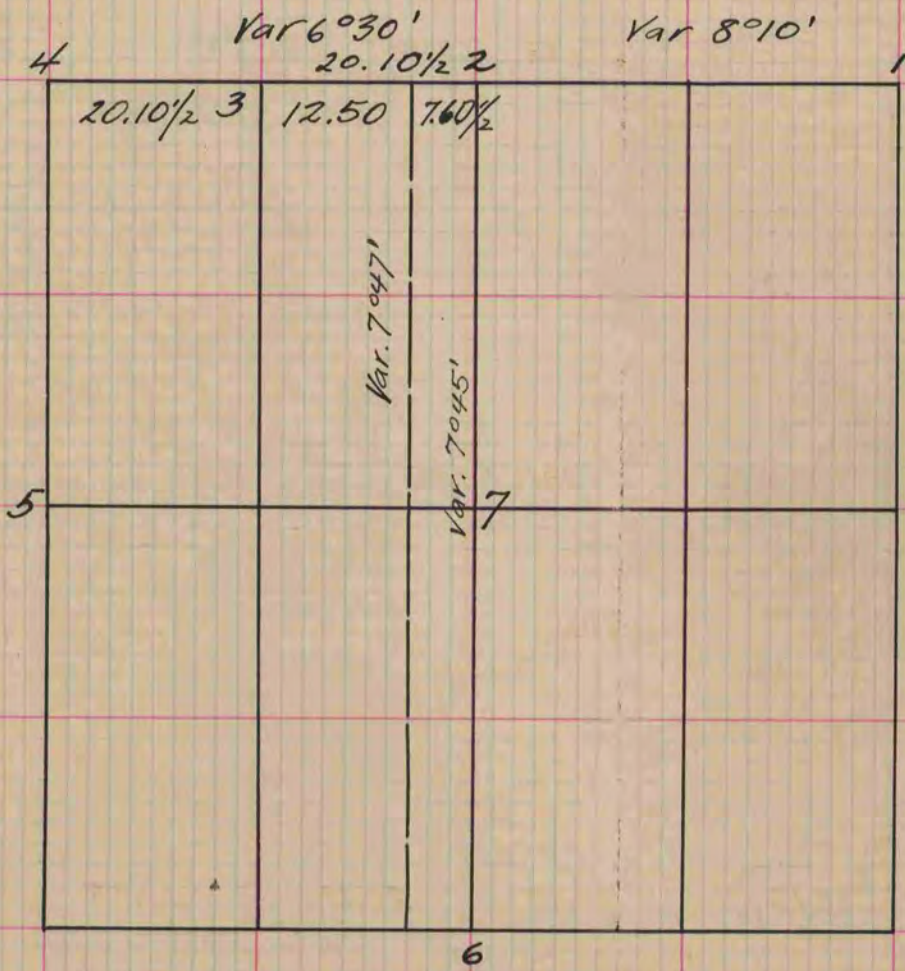 Var 6°30' Var 8°10'
4 20.10½ 2 1
20.10½ 3 12.50 7.60½
Var. 7°47'
Var. 7°45'
5 7
6